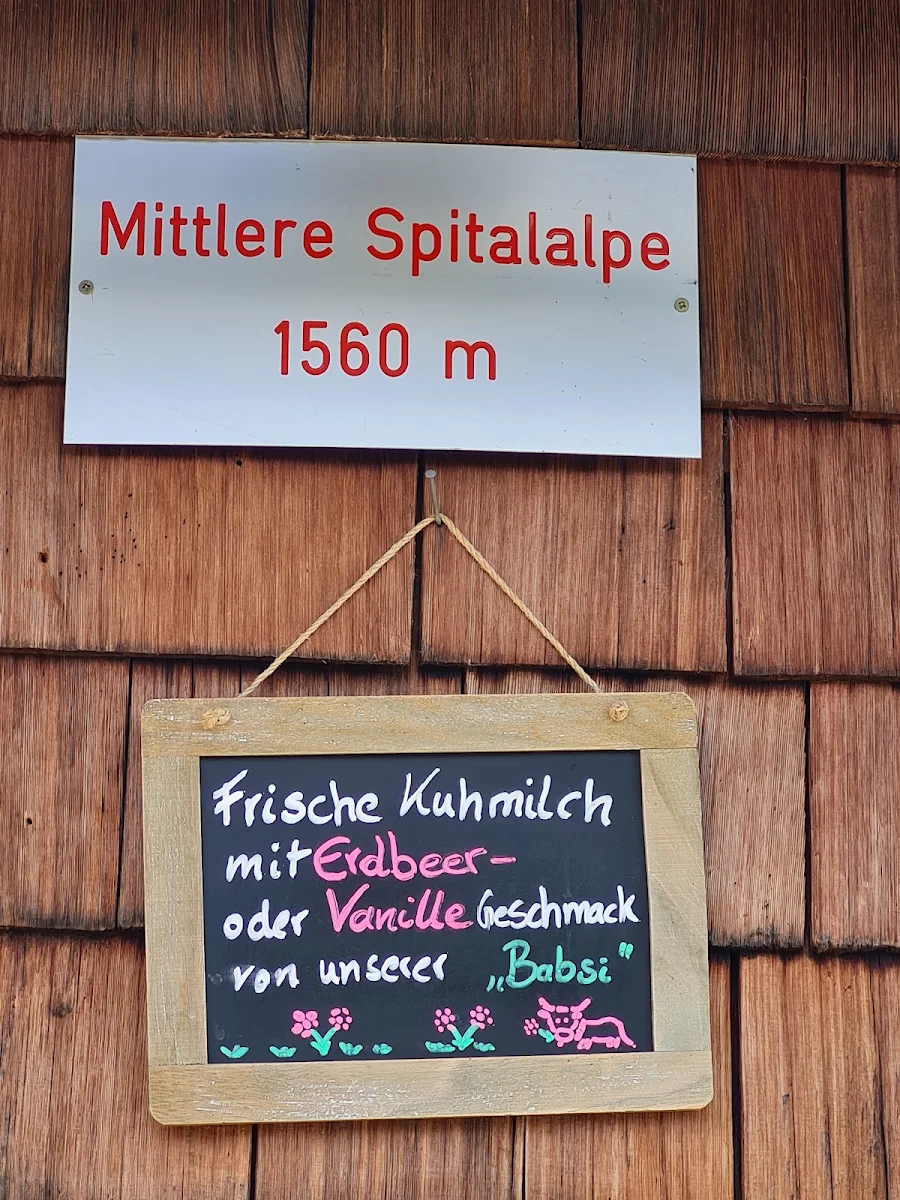 Mittlere Spitalalpe
1560 m
Frische Kuhmilch
mit Erdbeer-
oder Vanille Geschmack
von unserer „Babsi"